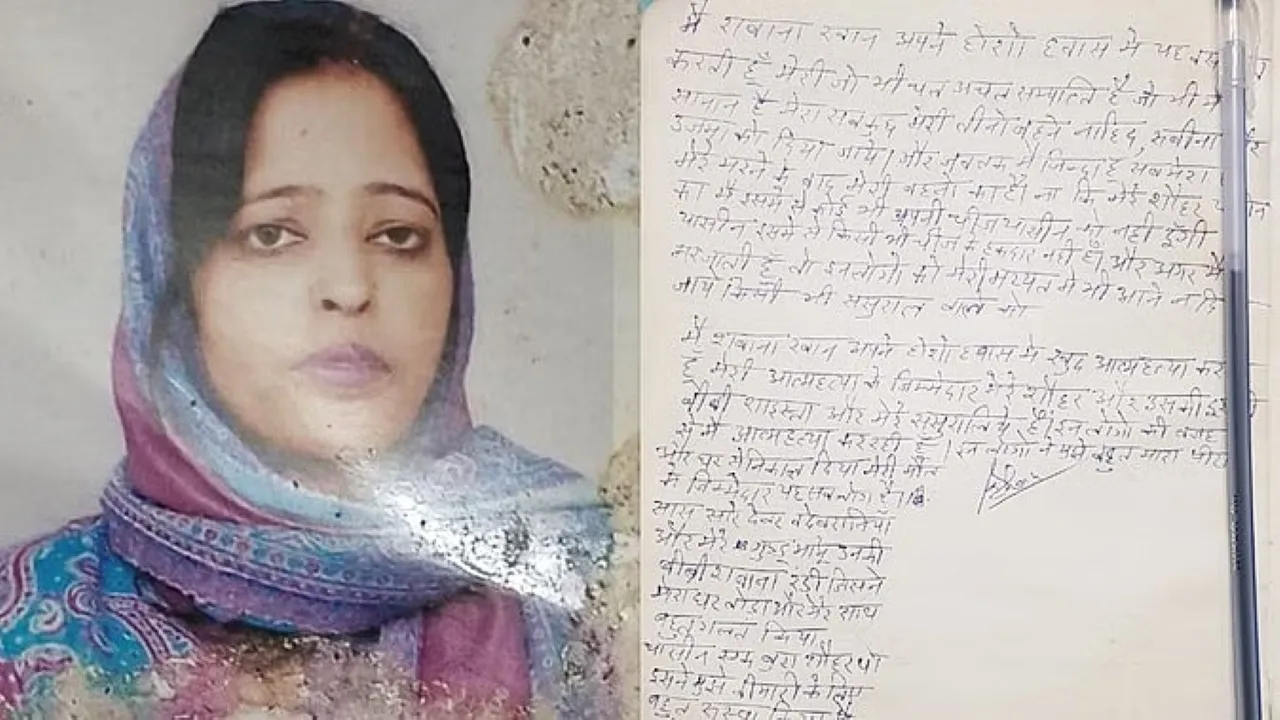 मैं शबाना खान अपने होशो हवास में यह
करती हूँ मेरी जो भी चल अचल सम्पत्ति है जो भी
सामान है मेरा सबकुछ मेरी तीनो बहने नाहिद, सबीना
उजमा को दिया जाये। और जबतक मैं जिन्दा हूँ सबमेरा
मेरे मरने के बाद मेरी बहनो का है। ना कि मेरे शौहर
का मैं इसमें से कोई भी अपनी चीज यासीन को नही दूंगी
यासीन इसमें से किसी भी चीज में हकदार नहीं है। और अगर मैं
मरजाती हूँ तो इनलोगो को मेरी मय्यत में भी आने न
जाये किसी भी ससुराल वाले को
मैं शबाना खान अपने होशो हवास में खुद आत्महत्या
हूँ मेरी आत्महत्या के जिम्मेदार मेरे शौहर और उसकी
बीबी शाइस्ता और मेरे ससुरालिये हैं। इन लोगो की वजह
से मैं आत्महत्या कर रही हूँ। इन लोगो ने मुझे बहुत मारा पीटा
और घर से निकाल दिया मेरी मौत
के जिम्मेदार यह सब लोग है।
सास ससुर देवर देवरानियाँ
और मेरे गुड्डू मामू उनकी
बीबी शबाना रंडी जिसने
मेरा घर तोड़ा और मेरे साथ
बहुत गलत किया
यासीन एक बुरा शौहर था
इसने मुझे बीमारी के लिए
बहुत